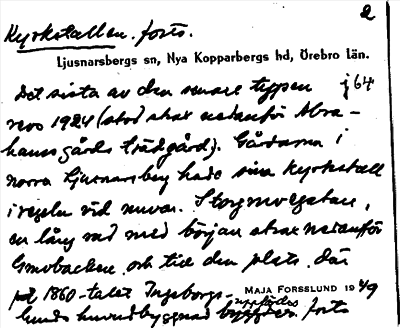 2
Kyrkstallen. forts.
Ljusnarsbergs sn, Nya Kopparbergs hd, Örebro län.
Det sista av den senare typen j 64
revs 1924 (stod strax nedanför Abra-
hamsgårds trädgård). Gårdarna i
norra Ljusnarsberg hade sina kyrkstall
i regeln vid nuvar. Storgatan,
en lång rad med början strax nedanför
backen och till den plats, där
på 1860-talet Ingeborgs-
MAJA FORSSLUND 19 /9
lunds huvudbyggnad uppfördes. forts